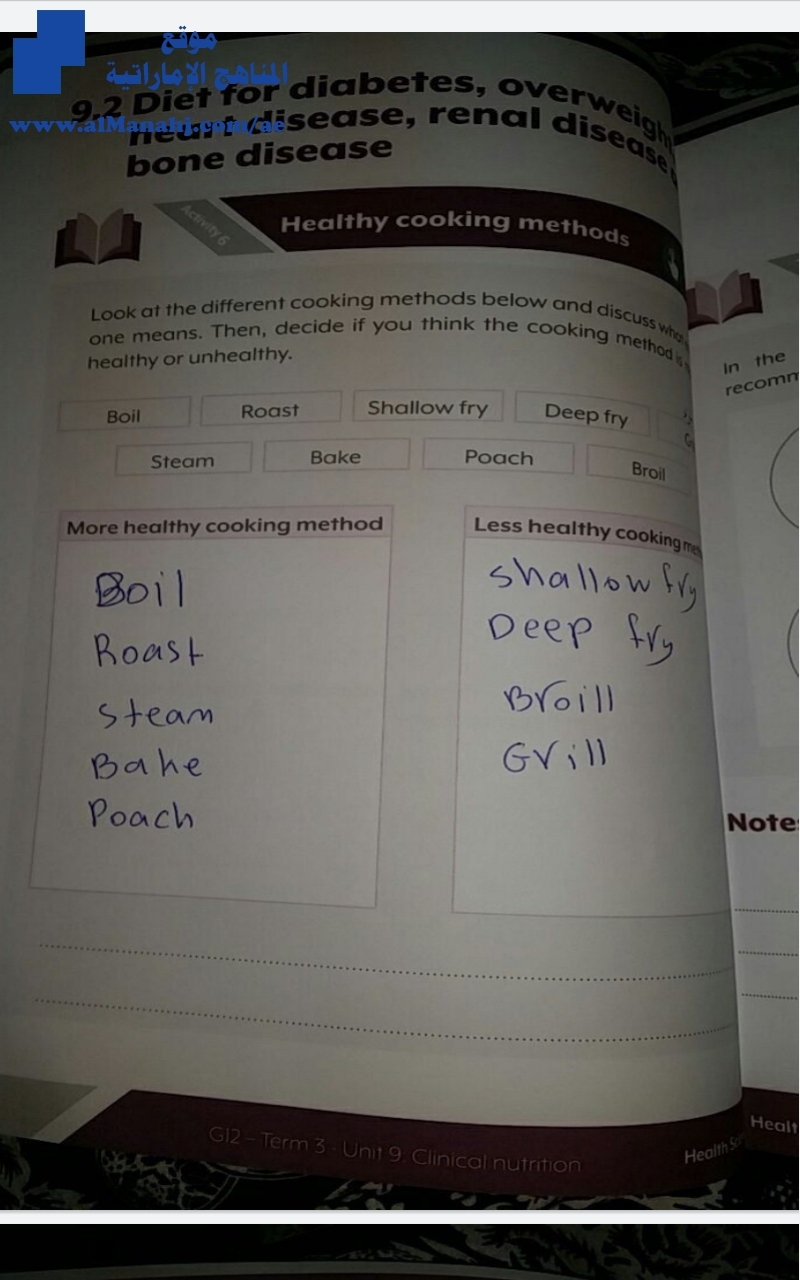 موقع
المناهج الإماراتية
www.alManahj.com/ae
9.2 Diet for diabetes, overweight,
heart disease, renal disease
bone disease
Activity 6
Healthy cooking methods
Look at the different cooking methods below and discuss what
one means. Then, decide if you think the cooking method is
healthy or unhealthy.
Boil Roast Shallow fry Deep fry
Steam Bake Poach Broil
More healthy cooking method
Boil
Roast
Steam
Bake
Poach
Less healthy cooking
Shallow fry
Deep fry
Broill
Grill
G12 – Term 3 - Unit 9: Clinical nutrition
Health
In the
Note
Healt